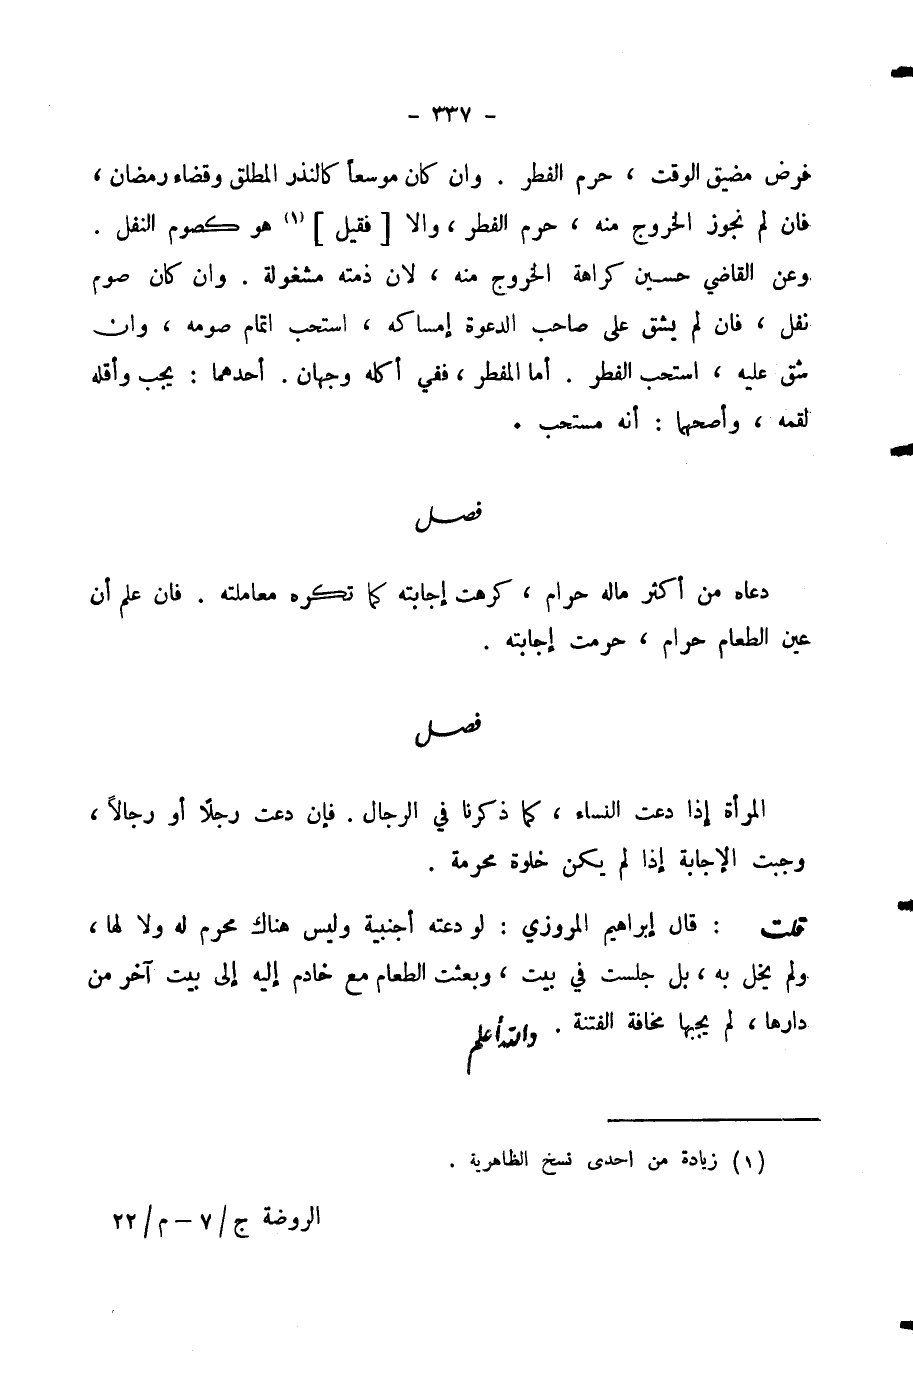 - ٣٣٧ -
فرض مضيق الوقت ، حرم الفطر . وان كان موسعاً كالنذر المطلق وقضاء رمضان ،
فان لم نجوز الخروج منه ، حرم الفطر ، والا [ فقيل ] (١) هو كصوم النفل .
وعن القاضي حسين كراهة الخروج منه ، لان ذمته مشغولة . وان كان صوم
نفل ، فان لم يشق على صاحب الدعوة إمساكه ، استحب اتمام صومه ، وان
شق عليه ، استحب الفطر . أما المفطر ، ففي أكله وجهان . أحدهما : يجب وأقله
لقمه ، وأصحها : أنه مستحب .
فصل
دعاه من أكثر ماله حرام ، كرهت إجابته كما تكره معاملته . فان علم أن
عين الطعام حرام ، حرمت إجابته .
فصل
المرأة إذا دعت النساء ، كما ذكرنا في الرجال . فإن دعت رجلًا أو رجالاً ،
وجبت الإجابة إذا لم يكن خلوة محرمة .
قلت : قال إبراهيم المروزي : لو دعته أجنبية وليس هناك محرم له ولا لها ،
ولم يخل به ، بل جلست في بيت ، وبعثت الطعام مع خادم إليه إلى بيت آخر من
دارها ، لم يجبها مخافة الفتنة . والله أعلم
(١) زيادة من احدى نسخ الظاهرية .
الروضة ج/ ٧ – م/ ٢٢